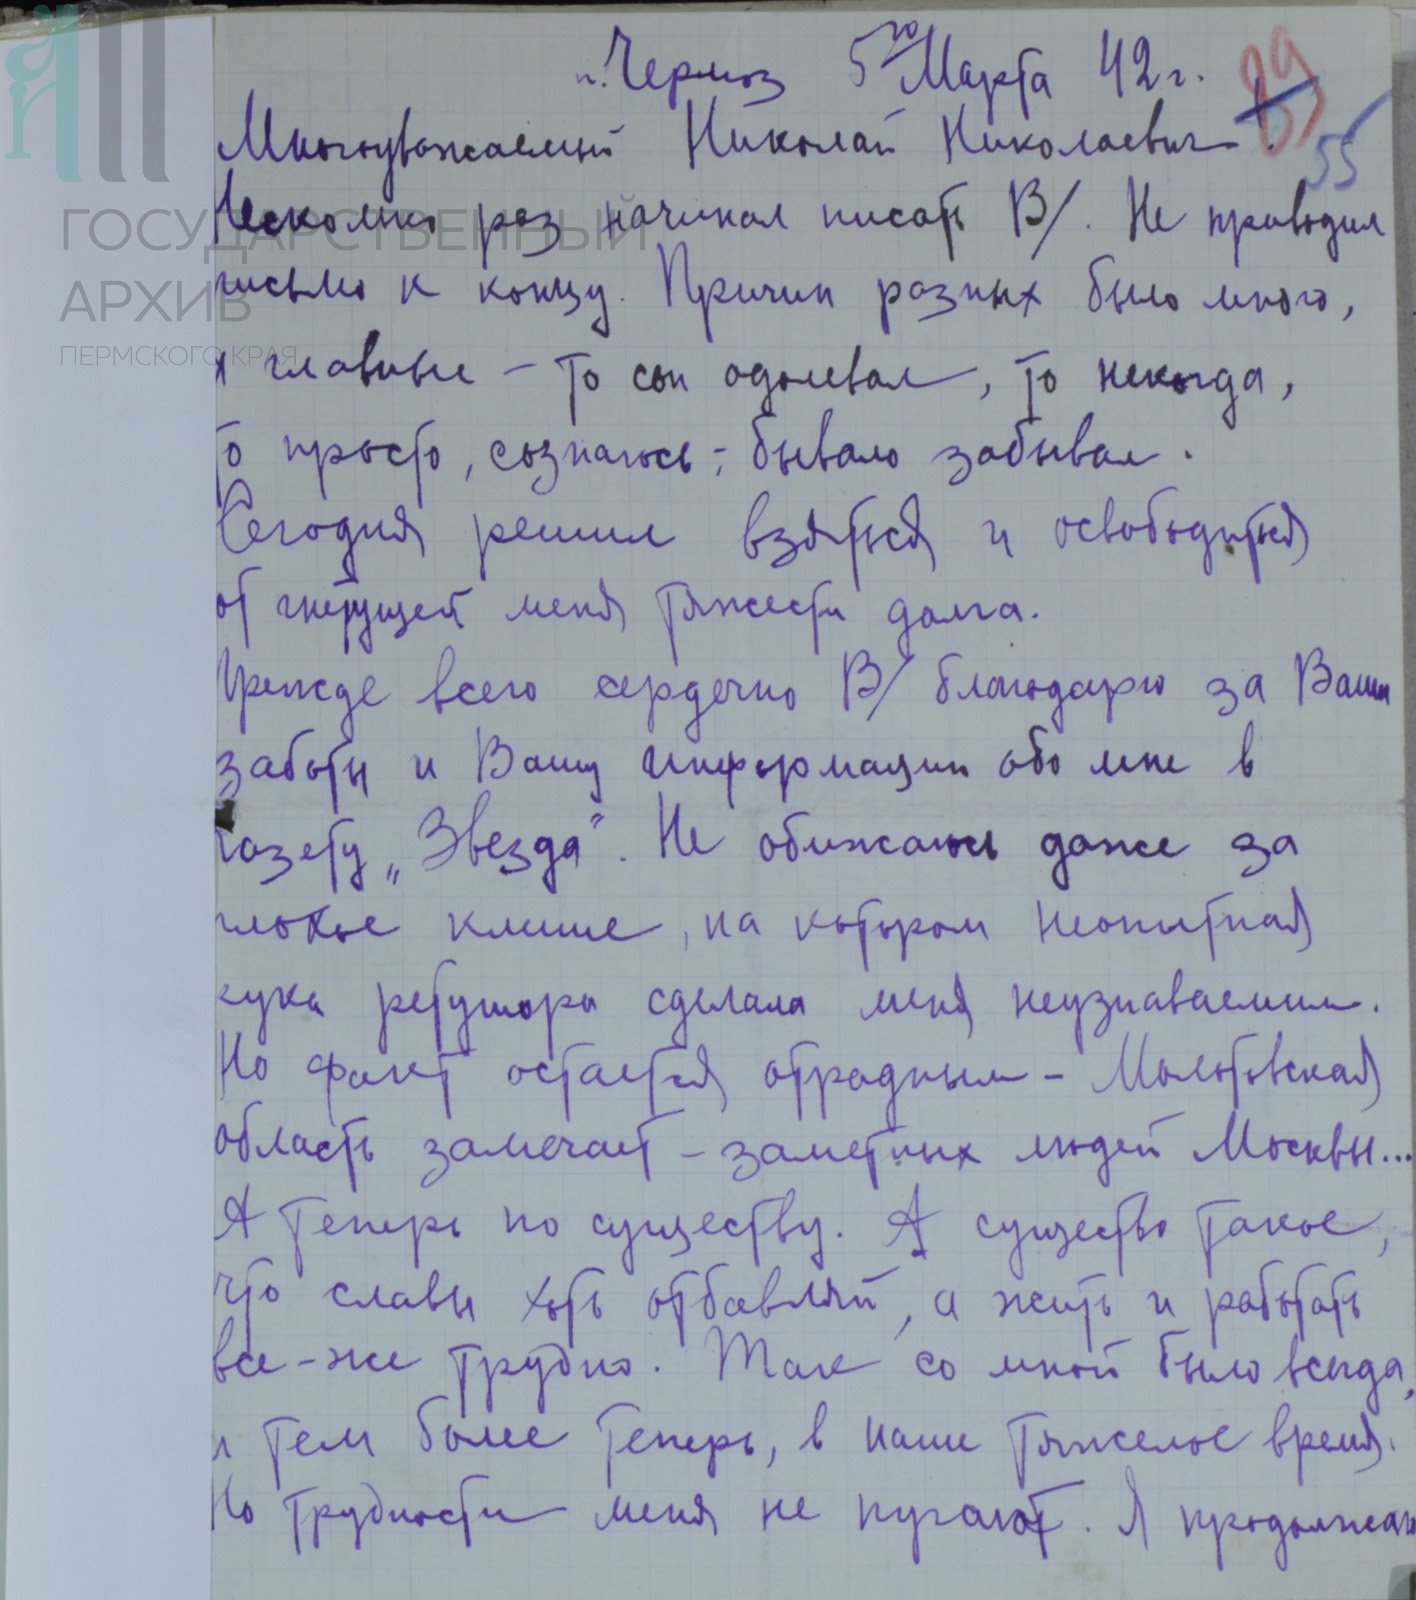 п. Чермоз 5го Марта 42 г.
89
55
Многоуважаемый Николай Николаевич.
Несколько раз начинал писать В/. Не приводил
письмо к концу. Причин разных было много,
и главные - то сон одолевал, то некогда,
то просто, сознаюсь, - бывало забывал.
Сегодня решил взяться и освободиться
от гнетущей меня тяжести долга.
Прежде всего сердечно В/ благодарю за Ваши
заботы и Вашу информацию обо мне в
газету „Звезда". Не обижаюсь даже за
плохое клише, на котором неопытная
рука ретушора сделала меня неузнаваемым.
Но факт остается отрадным - Молотовская
область замечает - заметных людей Москвы...
А теперь по существу. А существо такое,
что славы хоть отбавляй, а жить и работать
все-же трудно. Так со мной было всегда,
и тем более теперь, в наше тяжелое время.
Но трудности меня не пугают. Я продолжаю
ГОСУДАРСТВЕННЫЙ
АРХИВ
ПЕРМСКОГО КРАЯ